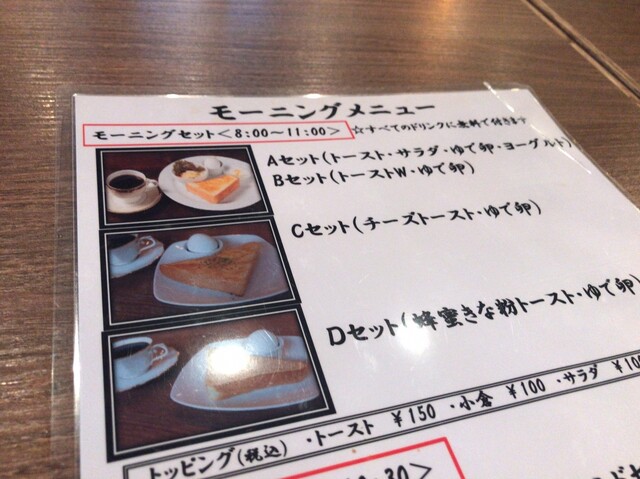 モーニングメニュー
モーニングセット＜8:00～11:00＞ ☆すべてのドリンクに無料で付きます
Aセット(トースト・サラダ・ゆで卵・ヨーグルト)
Bセット(トーストW・ゆで卵)
Cセット(チーズトースト・ゆで卵)
Dセット(蜂蜜きな粉トースト・ゆで卵)
トッピング(税込) ・トースト ￥150 ・小倉 ￥100 ・サラダ ￥100
:30＞